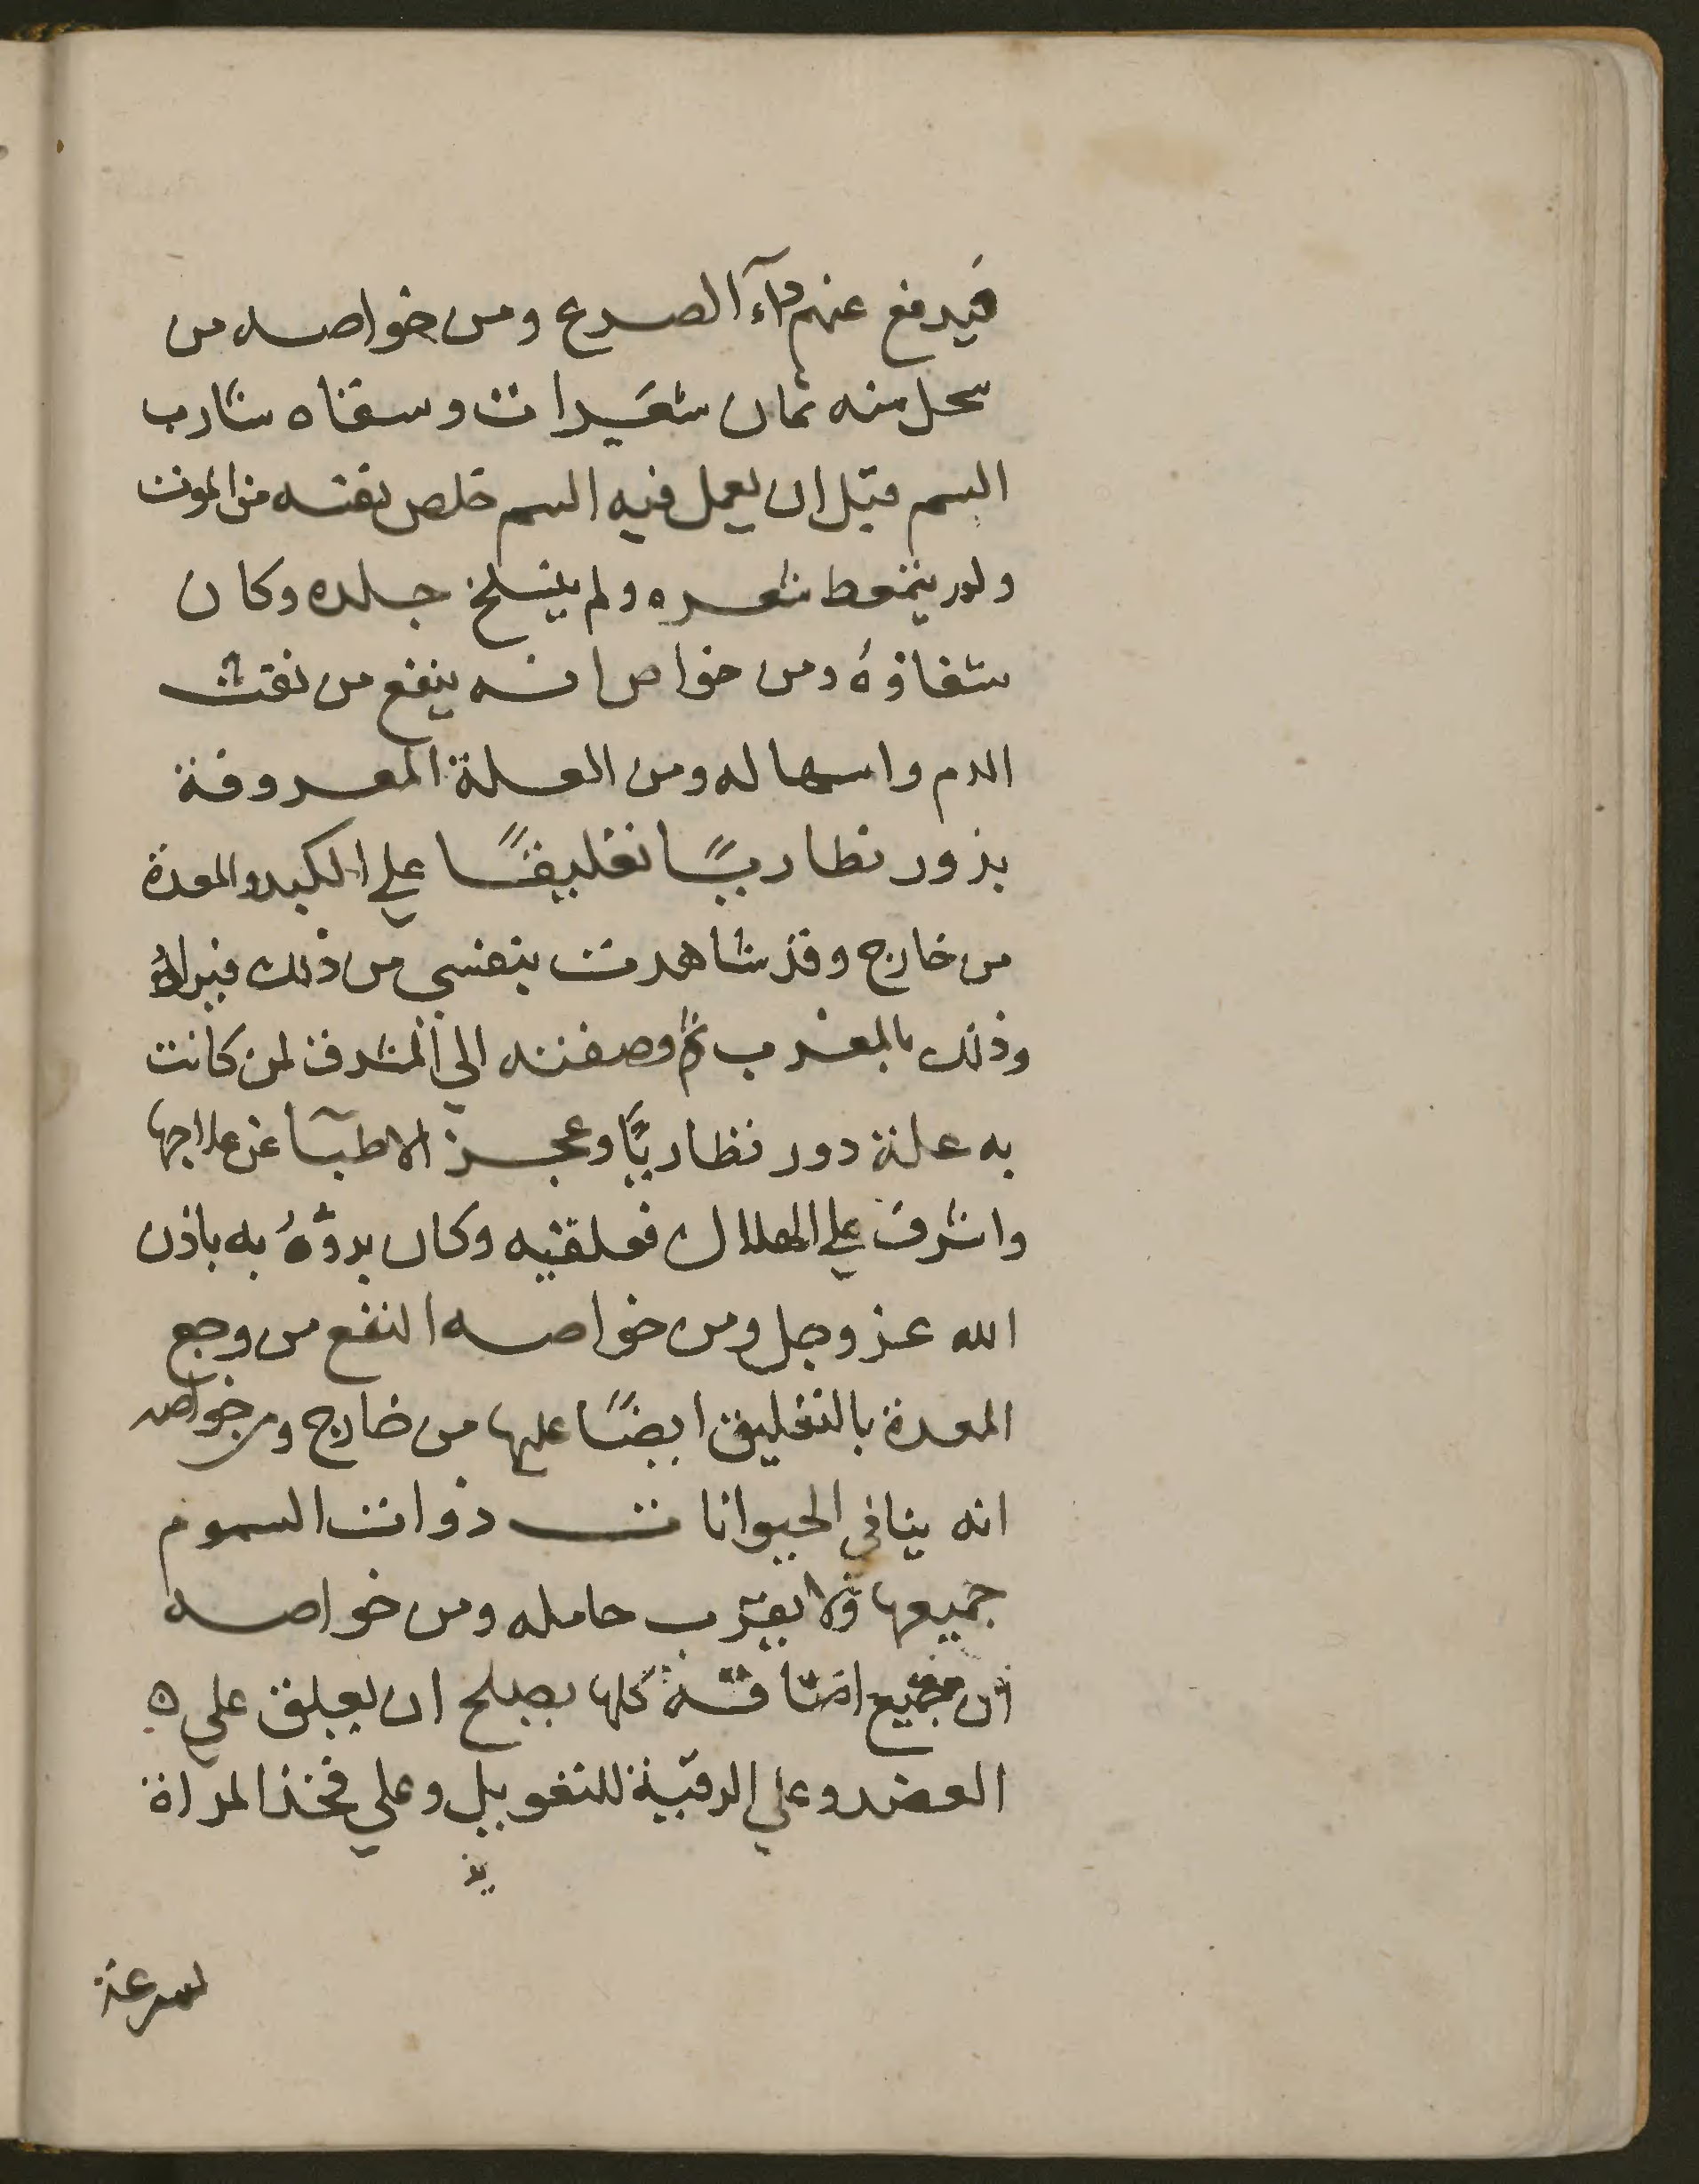 فيدفع عنهم داء الصرع ومن خواصه من
سحل منه ثمان شعيرات وسقاه شارب
السم قبل ان يعمل فيه السم خلص نفسه من الموت
ولم يتمعط شعره ولم ينسلخ جلده وكان
شفاؤهُ ومن خواص انه ينفع من نفث
الدم واسهاله ومن العلة المعروفة
بذور نطاريًا تعليقًا علي الكبد والمعدة
من خارج وقد شاهدت بنفسي من ذلك فبراهُ
وذلك بالمغرب ثم وصفته الي المشرف لمن كانت
به علة دور نظاريًا وعجز الاطبآ عن علاجها
واشرف علي الهلال فعلقيه وكان بروُهُ به باذن
الله عز وجل ومن خواصه النفع من وجع
المعدة بالتعليق ايضًا عليها من خارج ومن خواصه
انه ينافي الحيوانات ذوات السموم
جميعها ولا يقرب حامله ومن خواصه
ان جميع كلها يصلح ان يعلق علي
العضد وعلي الرقبة للتعويل وعلي فخذ المراة
لسرعة